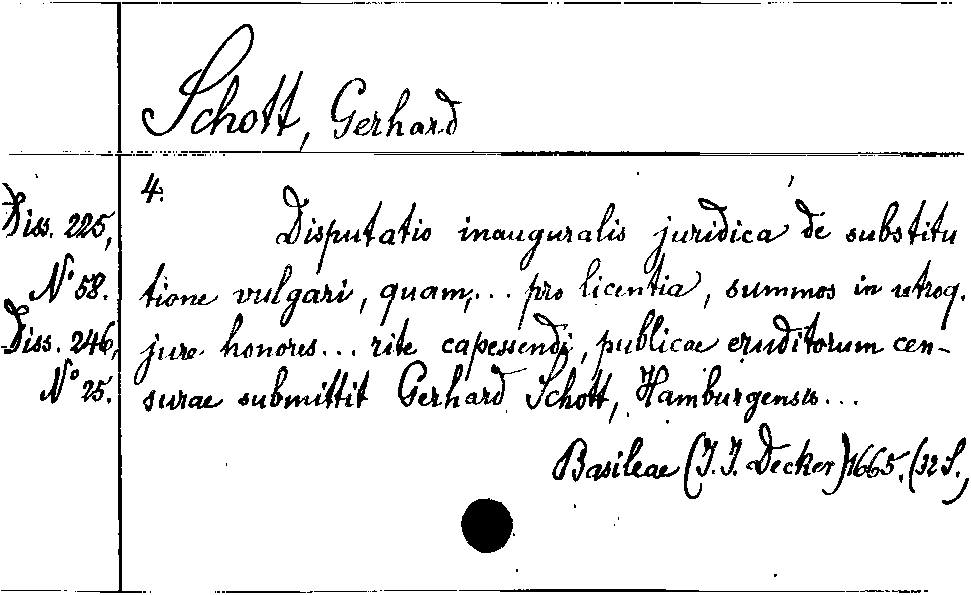 Schott, Gerhard
4.
Diss. 225,
N° 58.
Diss. 246,
N° 25.
Disputatio inauguralis juridica de substitu
tione vulgari, quam,... pro licentia, summos in utroq.
jure honores... rite capessendi, publicae eruditorum cen-
surae submittit Gerhard Schott, Hamburgensis...
Basileae (J. J. Decker) 1665. (32 S.)